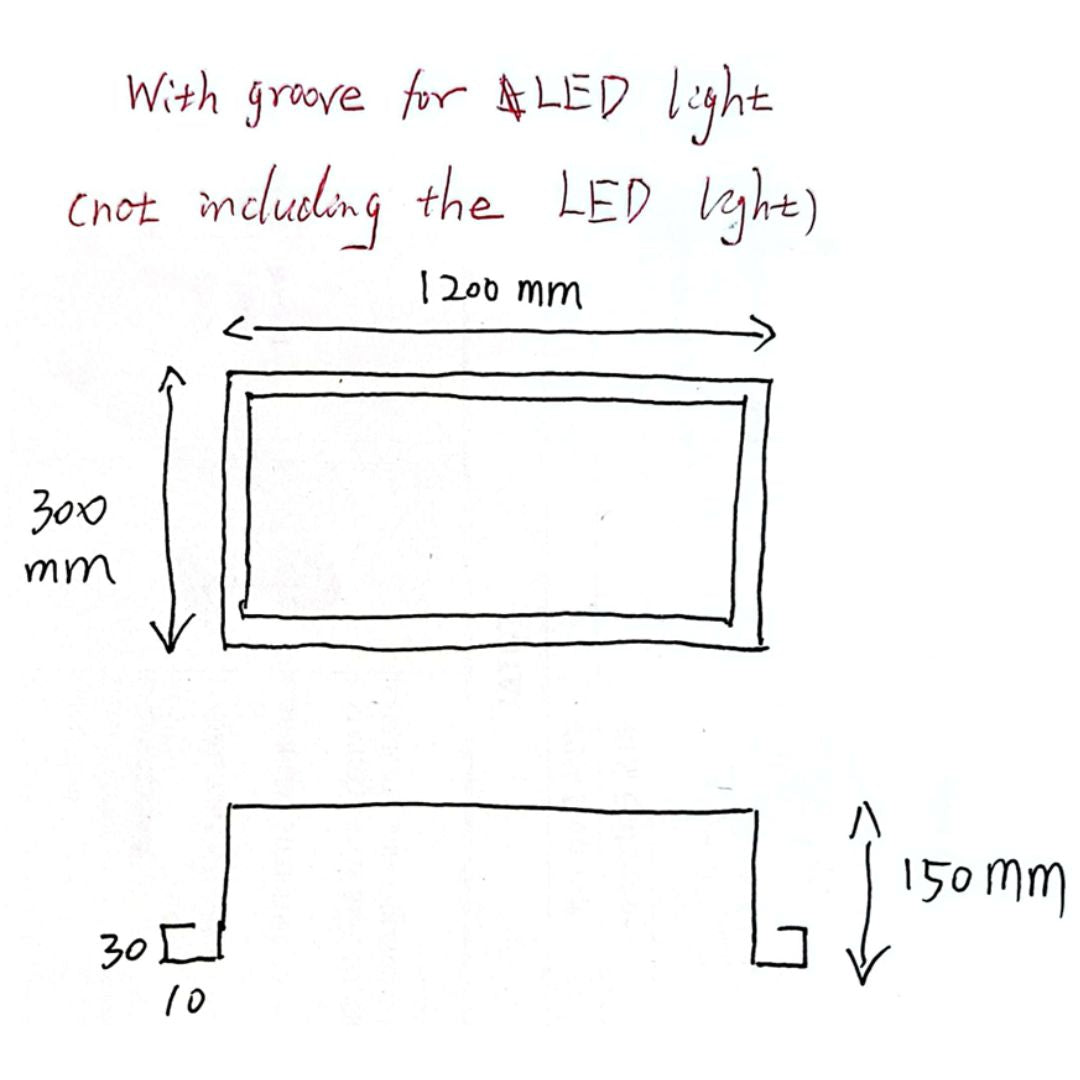 With groove for LED light
(not including the LED light)
1200 mm
300
mm
150 mm
30
10